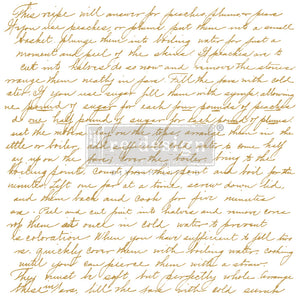 This recipe will answer for peaches plums or pears
If you use peaches or plums put them into a small
basket plunge them into boiling water for just a
moment and peel of the skins. If peaches are to
cut into halves do so now and remove the stones
arrange them neatly in jars. Fill the jars with cold
water. If you use sugar fill them with syrup allowing
one pound of sugar for each four pounds of peaches
or one half pound of sugar for each pound of plums
just the
on the tops, arrange them in the
boiler,
to come half
way up the jars. Cover the boiler, bring to the
boiling point. Count from this point and boil for
minutes. Lift one jar at a time screw down lid
and then back and cook for five minutes
Peel and cut fruit into halves and remove core
them at once in cold water to prevent
discoloration. When you have sufficient to fill
quickly cover them with boiling water, cooking
until you can pierce them with a straw.
They must be soft, but perfectly whole. Arrange
this in jars, fill the
with cold
redesign